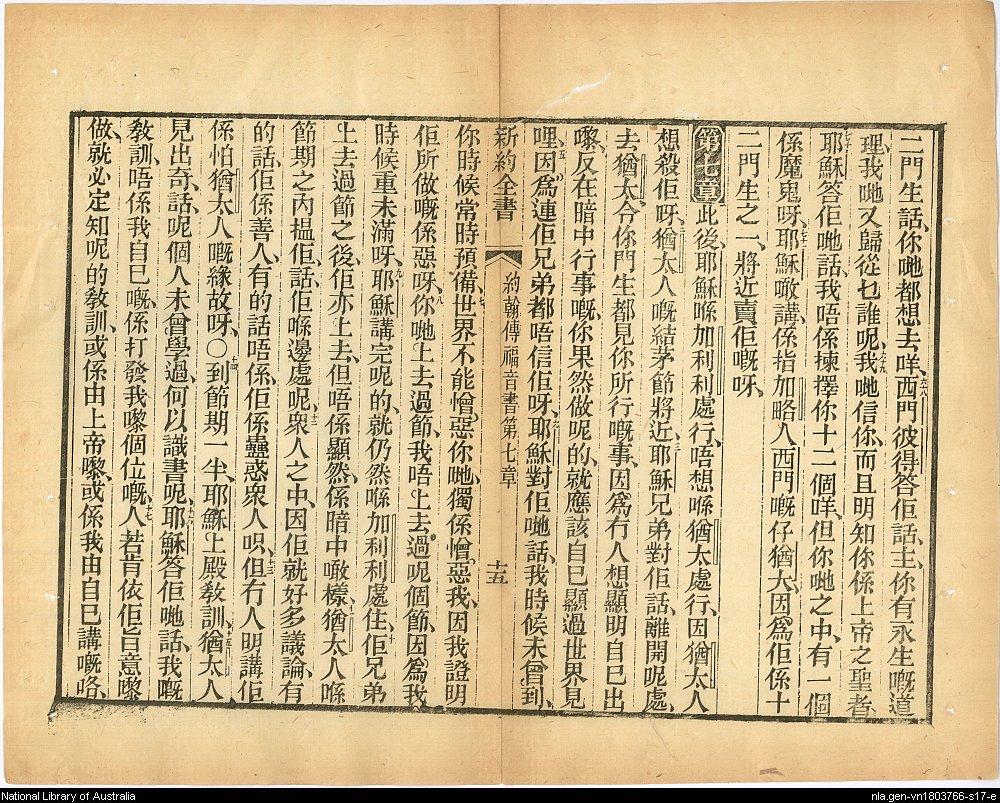 二門生話、你哋都想去咩、六八西門彼得答佢話、主、你有永生嘅道
理、我哋又歸從乜誰呢、六九我哋信你、而且明知你係上帝之聖者、
七十耶穌答佢哋話、我唔係揀擇你十二個咩、但你哋之中、有一個
係魔鬼呀、七一耶穌噉講、係指加略人西門嘅仔猶大、因為佢係十
二門生之一、將近賣佢嘅呀、
第七章此後、耶穌喺加利利處行、唔想喺猶太處行、因猶太人
想殺佢呀、二猶太人嘅結茅節將近、三耶穌兄弟對佢話、離開呢處、
去猶太、令你門生都見你所行嘅事、四因為冇人想顯明自己出
嚟、反在暗中行事嘅、你果然做呢的、就應該自己顯過世界見
哩、五因為連佢兄弟都唔信佢呀、六耶穌對佢哋話、我時候未曾到、
新約全書 約翰傳福音書第七章 十五
你時候常時預備、七世界不能憎惡你哋、獨係憎惡我、因我證明
佢所做嘅係惡呀、八你哋上去過節、我唔上去過呢個節、因為我
時候重未滿呀、九耶穌講完呢的、就仍然喺加利利處住、十佢兄弟
上去過節之後、佢亦上去、但唔係顯然、係暗中噉樣、十一猶太人喺
節期之內搵佢、話、佢喺邊處呢、十二衆人之中、因佢就好多議論、有
的話佢係善人、有的話唔係、佢係蠱惑衆人呮、十三但冇人明講佢、
係怕猶太人嘅緣故呀、〇十四到節期一半、耶穌上殿教訓、十五猶太人
見出奇、話、呢個人未曾學過、何以識書呢、十六耶穌答佢哋話、我嘅
教訓、唔係我自己嘅、係打發我嚟個位嘅、十七人若肯依佢旨意嚟
做、就必定知呢的教訓、或係由上帝嚟、或係我由自己講嘅咯、
National Library of Australia
nla.gen-vn1803766-s17-e